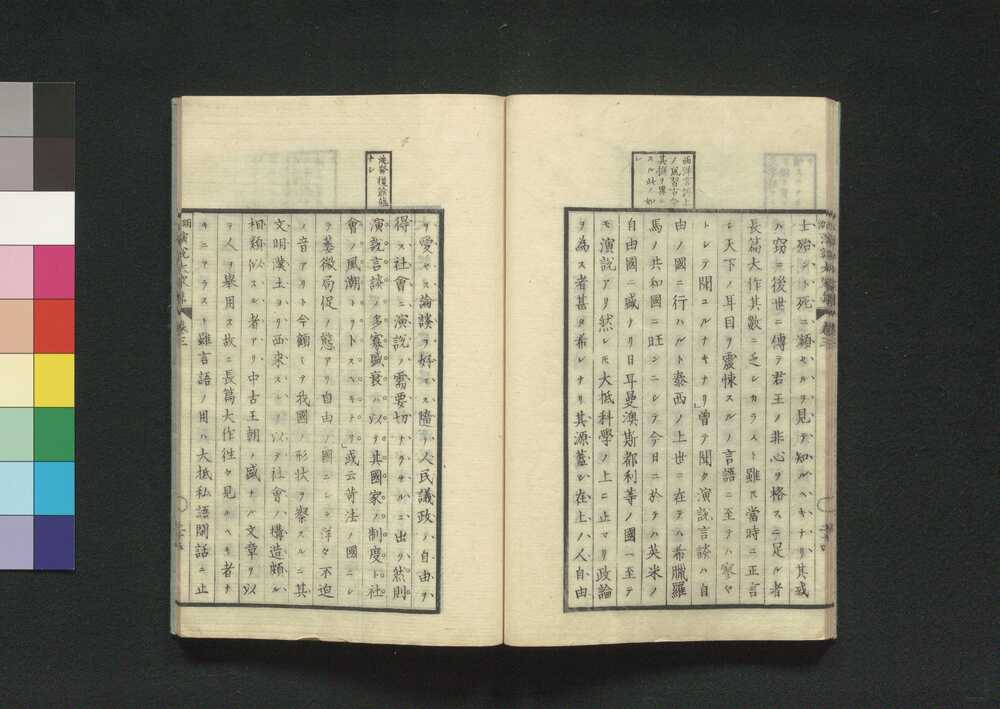 西洋言語上
ノ風習古今
其揆ヲ異ニ
スル此ノ如
シ
士殆ント死ニ瀕セルヲ見テ知ルヘキナリ其或
ハ窃ニ後世ニ傳テ君王ノ非心ヲ格スニ足ル者
長篇大作其數ニ乏シカラスト雖ス當時ニ正言
シ天下ノ耳目ヲ震悚スルノ言語ニ至テハ寥々
トシテ聞ユルナキナリ」曾テ聞ク演説言談ハ自
由ノ國ニ行ハルト泰西ノ上世ニ在テハ希臘羅
馬ノ共和國ニ旺ンニシテ今日ニ於テハ英米ノ
自由國ニ盛ナリ日耳曼澳斯都利等ノ國ニ至テ
モ演説アリ然レ𪜈大抵科學ノ上ニ止マリ政論
ヲ為ス者甚タ希レナリ其源蓋シ在上ノ人自由
ヲ愛セス論談ヲ好マス隨テ人民議政ノ自由ヲ
得ス社會ニ演説ノ需要切ナラサルニ出ツ然則
演説言談ノ多寡盛衰ハ以テ其國家ノ制度ト社
會ノ風潮トヲトスヘキナリ」或云苛法ノ國ニシ
テ萎微局促ノ態アリ自由ノ國ニシテ洋々不迫
ノ音アリト今飜シテ我國ノ形状ヲ察スルニ其
文明漢土ヨリ西来スルヲ以テ社會ノ構造頗ル
相類似スル者アリ中古王朝ノ盛ナル文章ヲ以
テ人ヲ擧用ス故ニ長篇大作往々見ルヘキ者ナ
キニアラスト雖言語ノ用ハ大抵私語閑話ニ止
卷三